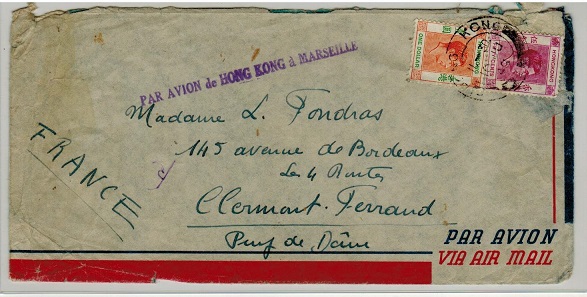 KONG
ONE DOLLAR
HONGKONG
PAR AVION de HONG KONG à MARSEILLE
Madame L. Fondras
145 avenue de Bordeaux
Les 4 Routes
Clermont-Ferrand
Puy de Dôme
FRANCE
PAR AVION
VIA AIR MAIL